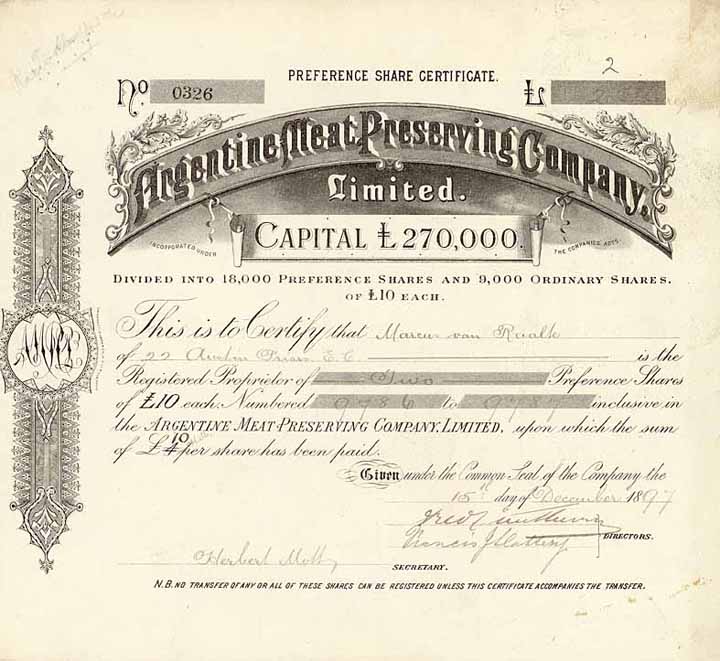 PREFERENCE SHARE CERTIFICATE.
No 0326
£ 2
Argentine Meat Preserving Company.
Limited.
INCORPORATED UNDER THE COMPANIES ACTS.
CAPITAL £270,000.
DIVIDED INTO 18,000 PREFERENCE SHARES AND 9,000 ORDINARY SHARES.
OF £10 EACH.
This is to Certify that Marcus van Raalte
of 22 Austin Friars E.C. is the
Registered Proprietor of Two Preference Shares
of £10 each. Numbered 9786 to 9787 inclusive in
the ARGENTINE MEAT PRESERVING COMPANY, LIMITED, upon which the sum
of £10 per share has been paid.
Given under the Common Seal of the Company the
15 day of December 1897
Francis J Slattery
DIRECTORS.
Herbert Mott
SECRETARY.
N.B. NO TRANSFER OF ANY OR ALL OF THESE SHARES CAN BE REGISTERED UNLESS THIS CERTIFICATE ACCOMPANIES THE TRANSFER.